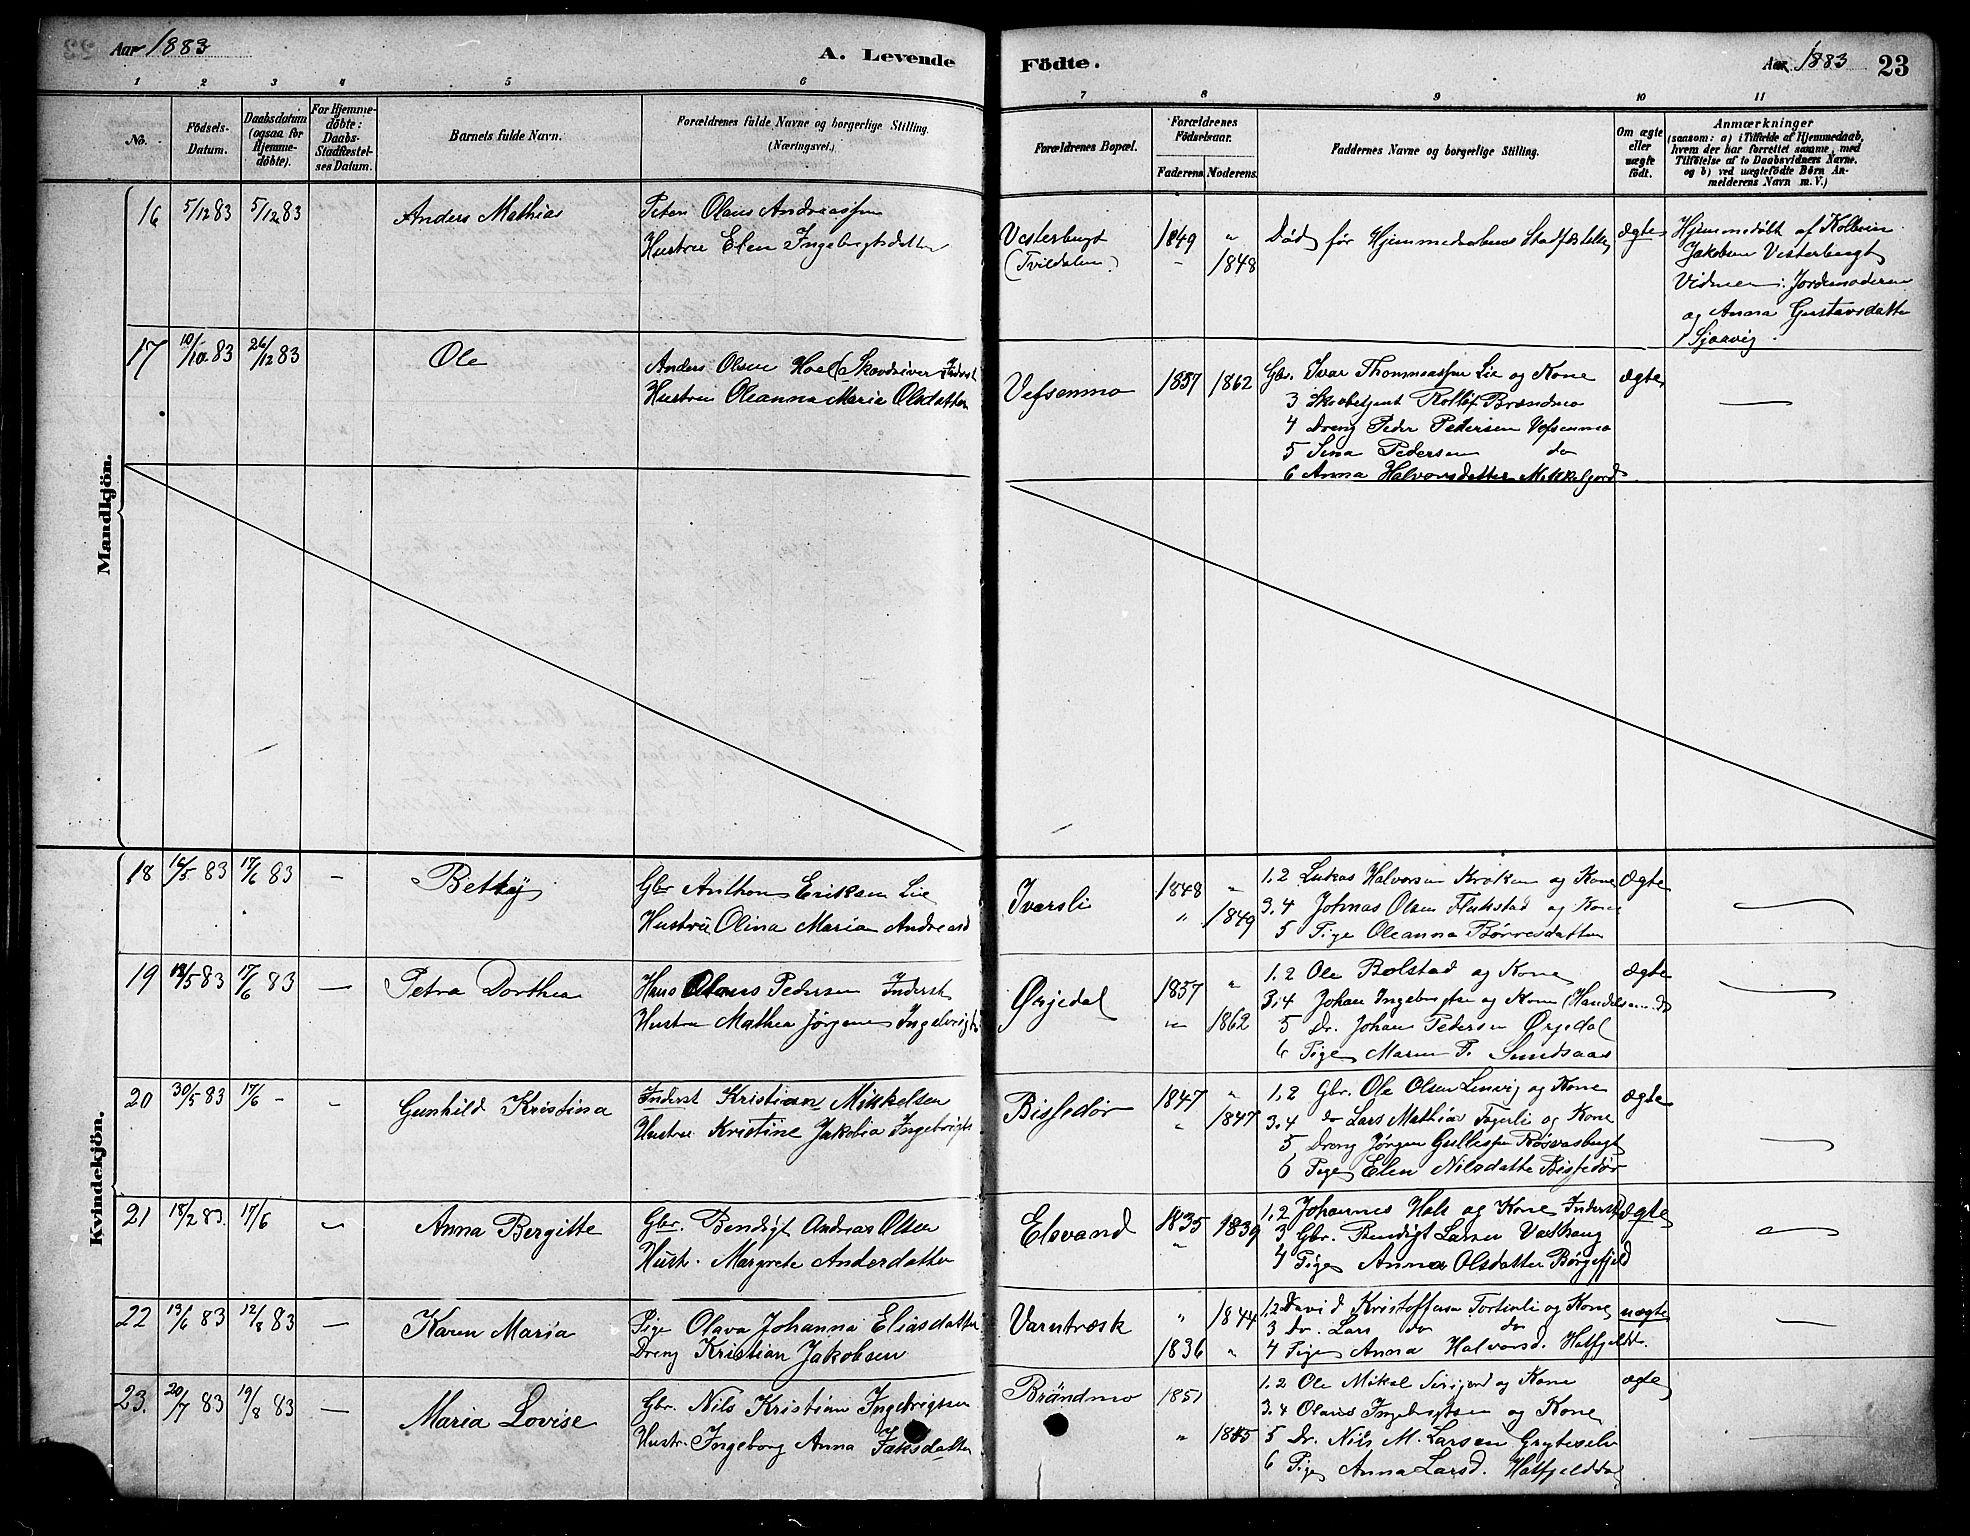 Aar 1883
A. Levende
Födte.
Aar 1883
23
1 2 3 4 5 6 7 8 9 10 11
No.
Födsels-Datum.
Daabsdatum (ogsaa for Hjemme-döbte).
For Hjemme-döbte: Daabs-Stadfæstel-ses Datum.
Barnets fulde Navn.
Forældrenes fulde Navne og borgerlige Stilling.
(Næringsvei.)
Forældrenes Bopæl.
Forældrenes Födselsaar.
Faderens. Moderens.
Faddernes Navne og borgerlige Stilling.
Om ægte eller uægte födt.
Anmærkninger
(saasom: a) i Tilfælde af Hjemmedaab,
hvem der har forrettet samme, med
Tilföielse af to Daabsvidners Navne.
og b) ved uægtefödte Börn An-
melderens Navn m. V.)
Mandkjön.
16 5/12 83 5/12 83 Anders Mathias
Peter Olaus Andreassen
Hustru Elen Ingebrigtsdatter
Vesterbugt 1849 "
(Tvildalen) " 1848
Död før Hjemmedaabens Stadfæstelse
ægte
Hjemmedøbt af Kolbein
Jakobsen Vesterbugt
Vidner: Jordemoderen
og Anna Gustavsdatter
Sjaavig.
17 10/10 83 26/12 83 Ole
Anders Olsen Hoel (Skovdriver Inderst
Hustru Oleanna Maria Olsdatter
Vefsenmo 1857 1862
Gbr. Ivar Thommassen Lie og Kone
3 Skovbetjent Rolløf Brændmo
4 Dreng Peder Pedersen Vefsenmo
5 Sina Pedersen do
6 Anna Halvorsdatter Mikkeljord
ægte
Kvindekjön.
18 16/5 83 17/6 83 — Betty
Gbr Anthon Eriksen Lie
Hustru Olina Maria Andreasd
Iversli 1848 "
" 1849
1,2 Lukas Halvorsen Kroken og Kone
3,4 Johnas Olsen Flukstad og Kone
5 Pige Oleanna Børresdatter
Ægte
19 12/5 83 17/6 83 — Petra Dorthea
Hans Olaus Pedersen Inderst
Hustru Mathea Jørgene Ingebrigts
Ørjedal 1857 "
" 1862
1,2 Ole Bolstad og Kone
3,4 Johan Ingebrigtsen og Kone (Handelsmand)
5 Dr. Johan Pedersen Ørjedal
6 Pige Maren P. Sundsaas
ægte
20 30/5 83 17/6 - - Gunhild Kristina
Inderst Kristian Mikkelsen
Hustru Kristine Jakobia Ingebrigts
Bisledør 1847 "
" 1847
1,2 Gbr. Ole Olsen Lenvig og Kone
3,4 do Lars Mathias Fagerli og Kone
5 Dreng Jørgen Gullesen Røsvasbugt
6 Pige Elen Nilsdatte Bisledør
ægte
21 18/2 83. 17/6 — Anna Bergitte
Gbr. Bendigt Andreas Olsen
Hust. Margrete Andersdatter
Elsvand 1835 1839
1,2 Johannes Hals og Kone Inderst
3 Gbr. Bendigt Larsen
4 Pige Anna Olsdatter Børgefjeld
ægte
22 13/6 83 12/8 83 — Karen Maria
Pige Olava Johanna Eliasdatter
Dreng Kristian Jakobsen
Varntræsk " 1844
1836 "
1,2 David Kristoffersen Tortenli og Kone
3 Dr. Lars do do
4 Pige Anna Halvorsd. Hatfjeldd.
uægte
23. 20/7 83 19/8 83 — Maria Lovise
Gbr. Nils Kristian Ingebrigtsen
Hustr. Ingeborg Anna Isaksdatter
Brändmo 1851
" 1855
1,2 Ole Mikal og Kone
3,4 Olaus Ingebrigtsen og Kone
5 Dr. Nils M. Larsen Grytselv
6 Pige Anna Larsd. Hatfjelddal
ægte